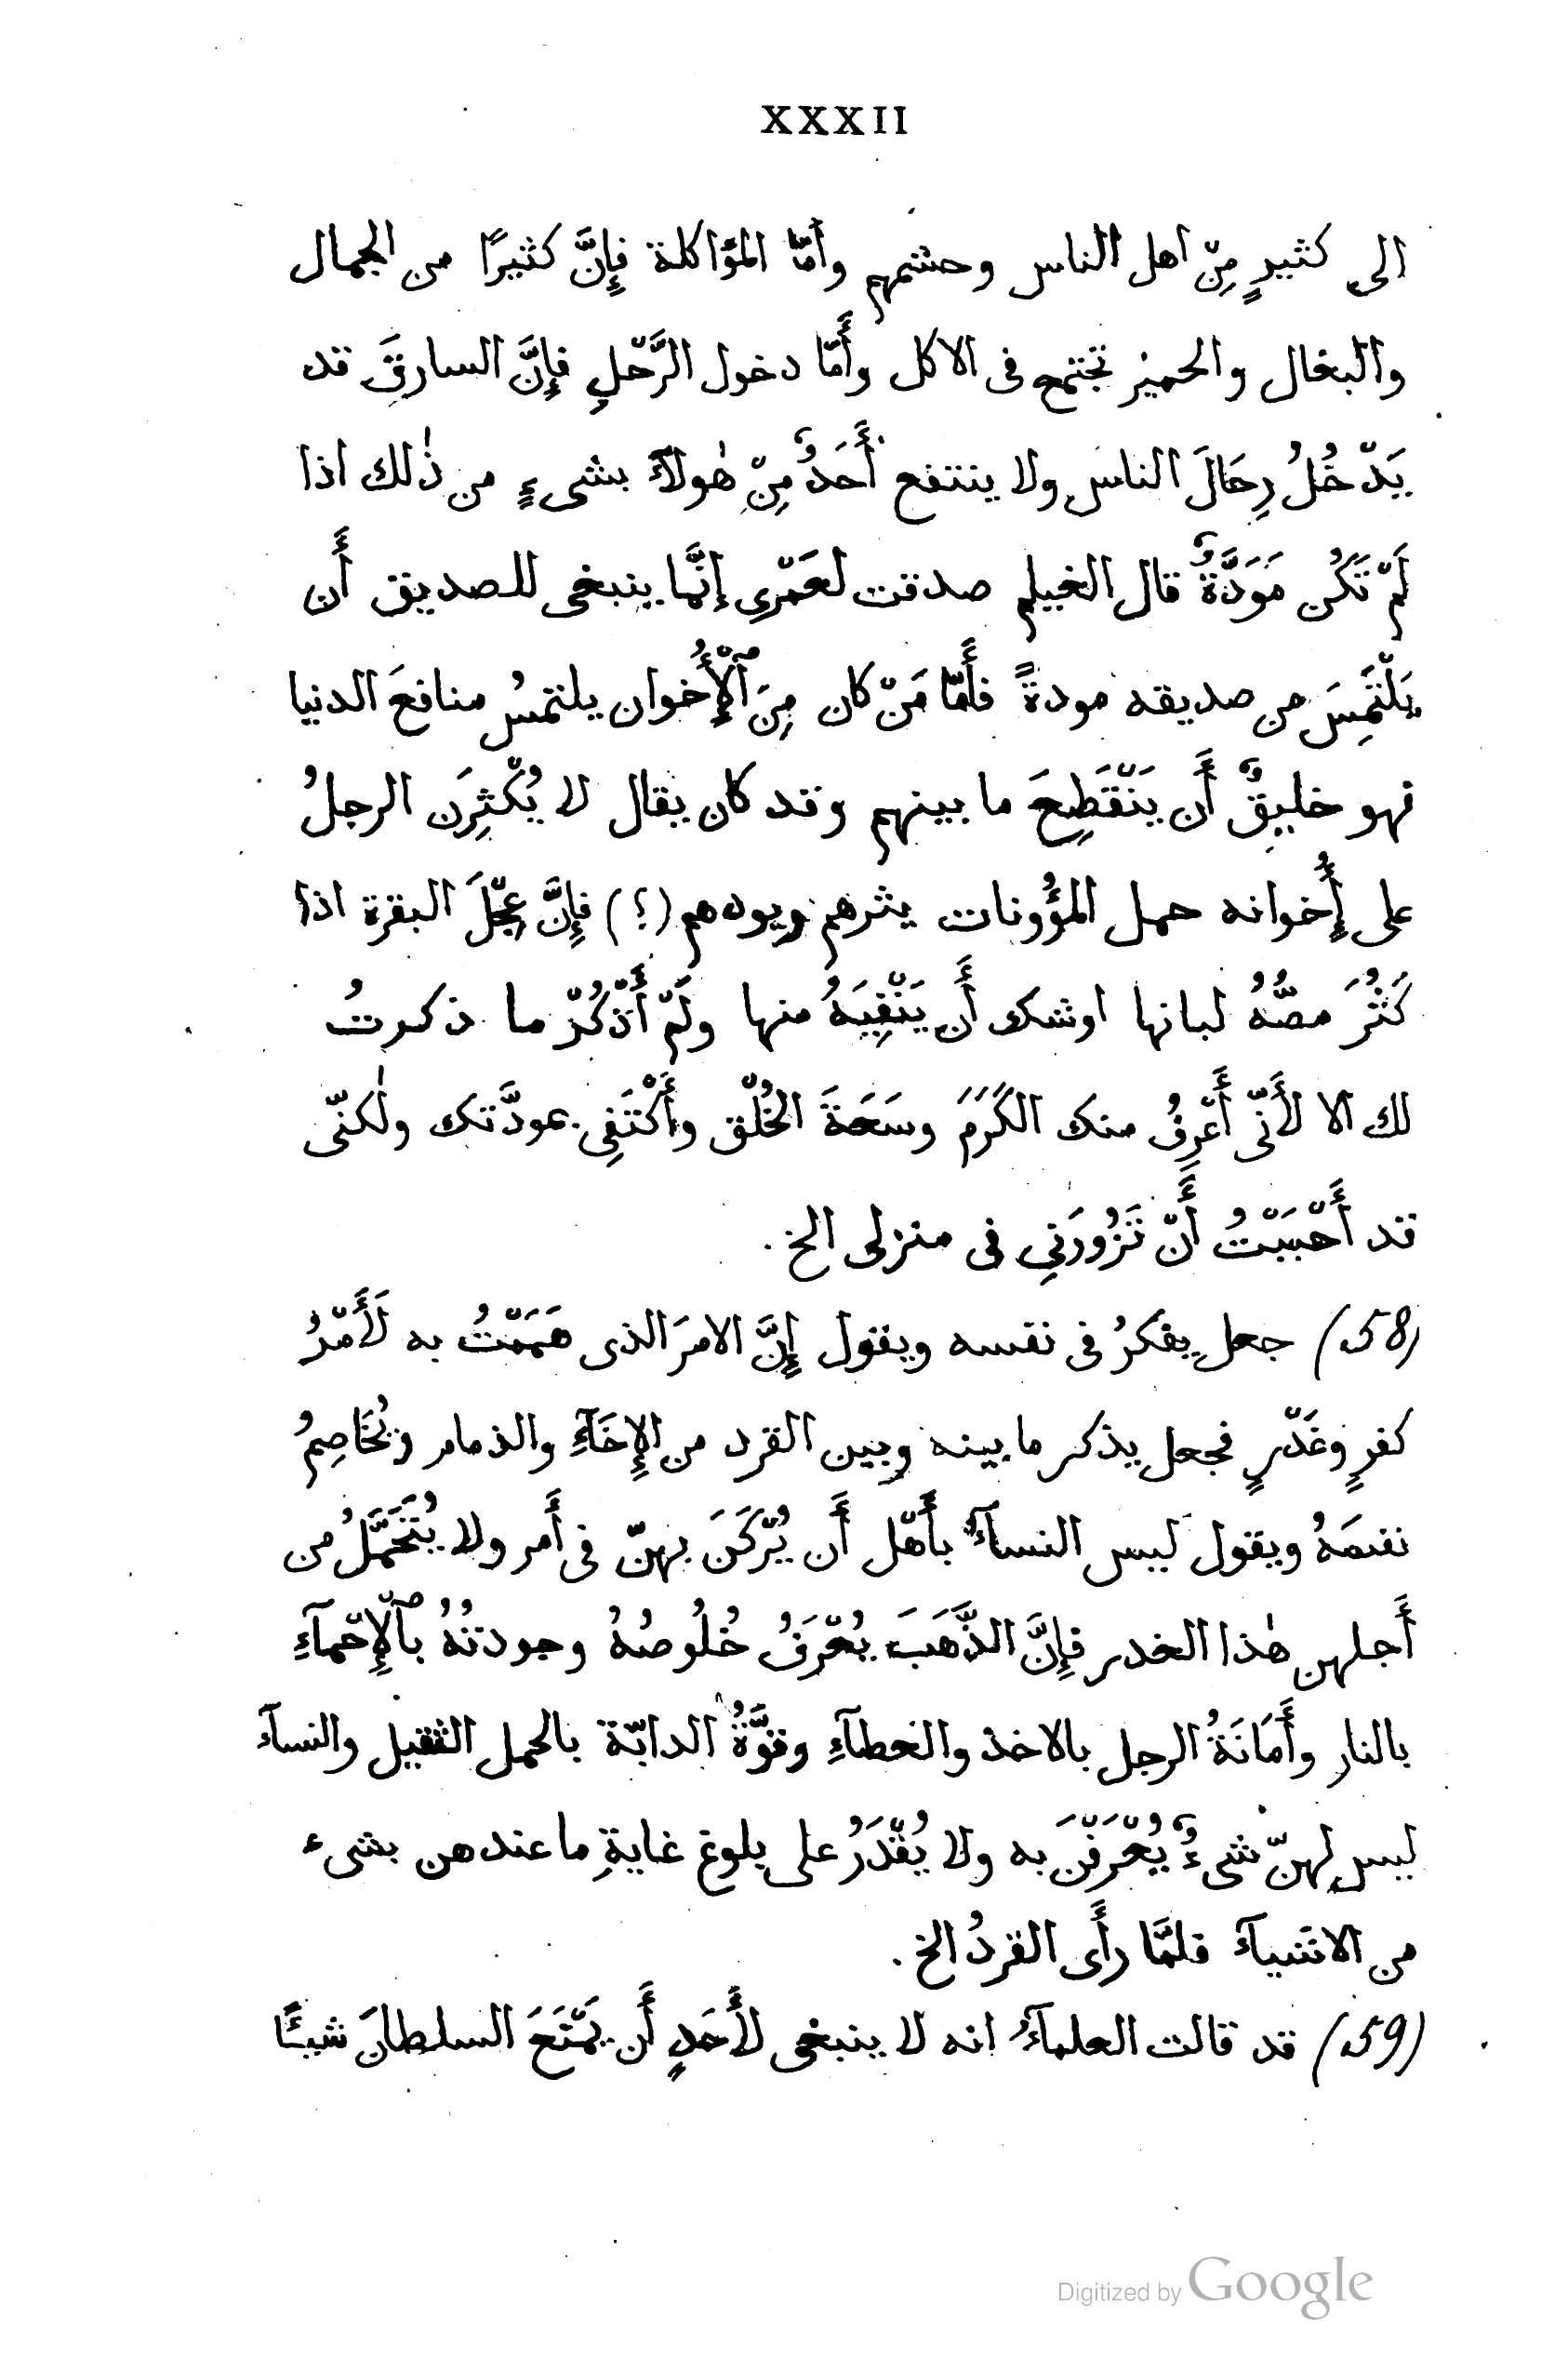 XXXII
الى كثيرٍ مِنْ اهل الناس وحشمهم وأمّا المؤاكلة فإِنَّ كثيرًا من الجمال
والبغال والحمير تجتمع فى الاكل وأَمّا دخول الرَّحْلِ فإِنَّ السارقَ قد
يَدْخُلُ رِحَالَ الناس ولا ينتفع أَحَدٌ مِنْ هٰولآءَ بشىءٍ من ذٰلك اذا
لَمْ تَكُن مَوَدَّةٌ قال الغيلم صدقت لعَمْرِى إِنَّما ينبغى للصديق أَن
يَلْتَمِسَ من صديقه مودةً فأَمّا مَنْ كان مِنَ ٱلْإِخوان يلتمسُ منافعَ الدنيا
فهو خليقٌ أَن يَنْقَطِعَ ما بينهم وقد كان يقال لا يُكْثِرَن الرجلُ
على إِخوانه حمل المؤُونات يثرهم ويودهم (؟) فإِنَّ عِجْلَ البقرة اذا
كَثُرَ مصُّهُ لبانها اوشك أَن يَنْقِيَهُ منها ولَمْ أَذْكُرْ ما ذكرتُ
لك الا لأَنّى أَعْرِفُ منك الكَرَمَ وسَعَةَ الخُلْق وأَكْتَفِى بمودَّتك ولٰكنّى
قد أَحْبَبْتُ أَنْ تَزُورَنِى فى منزلى الخ .
(58) جعل يفكرُ فى نفسه ويقول إِنَّ الامرَ الذى هَمَمْتُ به لَأَمْرُ
كفرٍ وغَدْرٍ فجعل يذكر ما بينه وبين القرد من الإِخَآءِ والذمام ويُخَاصِمُ
نفسَهُ ويقول ليس النسآءُ بأَهْل أَن يُرْكَنَ بهنّ فى أَمر ولا يُتَحَمَّلُ من
أَجلهن هٰذا الغدر فإِنَّ الذَّهَبَ يُعْرَفُ خُلُوصُهُ وجودتُهُ بٱلْإِحْمآءِ
بالنار وأَمَانَةُ الرجل بالاخذ والعطآءِ وقوَّةُ الدابّة بالحمل الثقيل والنسآء
ليس لهنّ شىءٌ يُعْرَفْنَ به ولا يُقْدَرُ على بلوغ غايةِ ما عندهن بشىء
من الاشيآءَ فلمَّا رأَى القردُ الخ .
(59) قد قالت العلمآءُ انه لا ينبغى لأَحَدٍ أَن يَمْنَعَ السلطانَ شيئًا
Digitized by Google